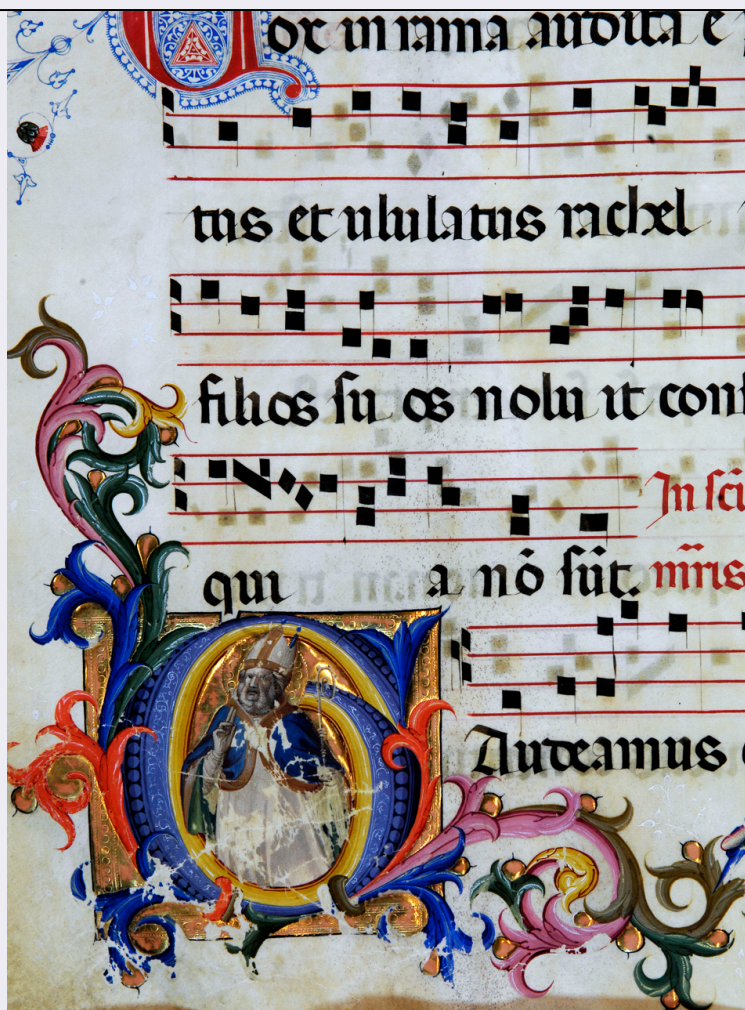 Vox in rama audita ē
tus et ululatus rachel
filios su os nolu it con
In scī
qui a nō sūt. mr̄is
Gaudeamus